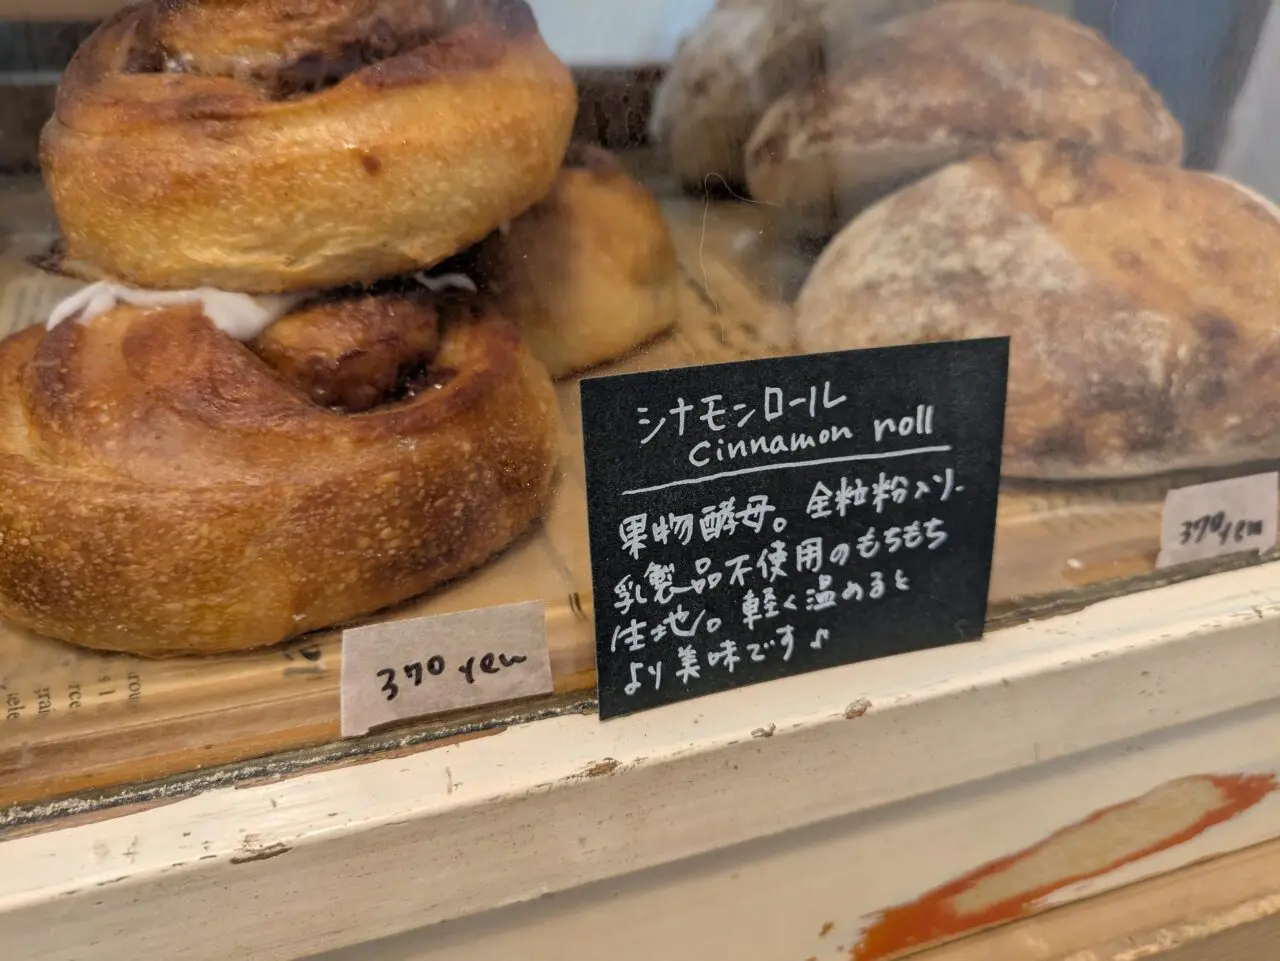 シナモンロール
cinnamon roll
果物酵母。全粒粉入り。
乳製品不使用のもちもち
生地。軽く温めると
より美味です♪
370 yen
370 yen